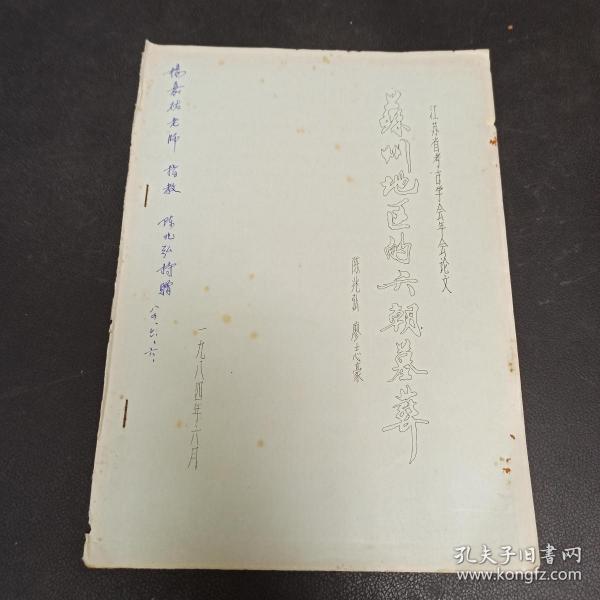 江苏省考古学会年会论文
苏州地区的六朝墓葬
陈兆弘 廖志豪
一九八四年六月
杨嘉祐老师 指教
陈兆弘持赠
八四、六、六、
孔夫子旧书网
www.kongfz.com